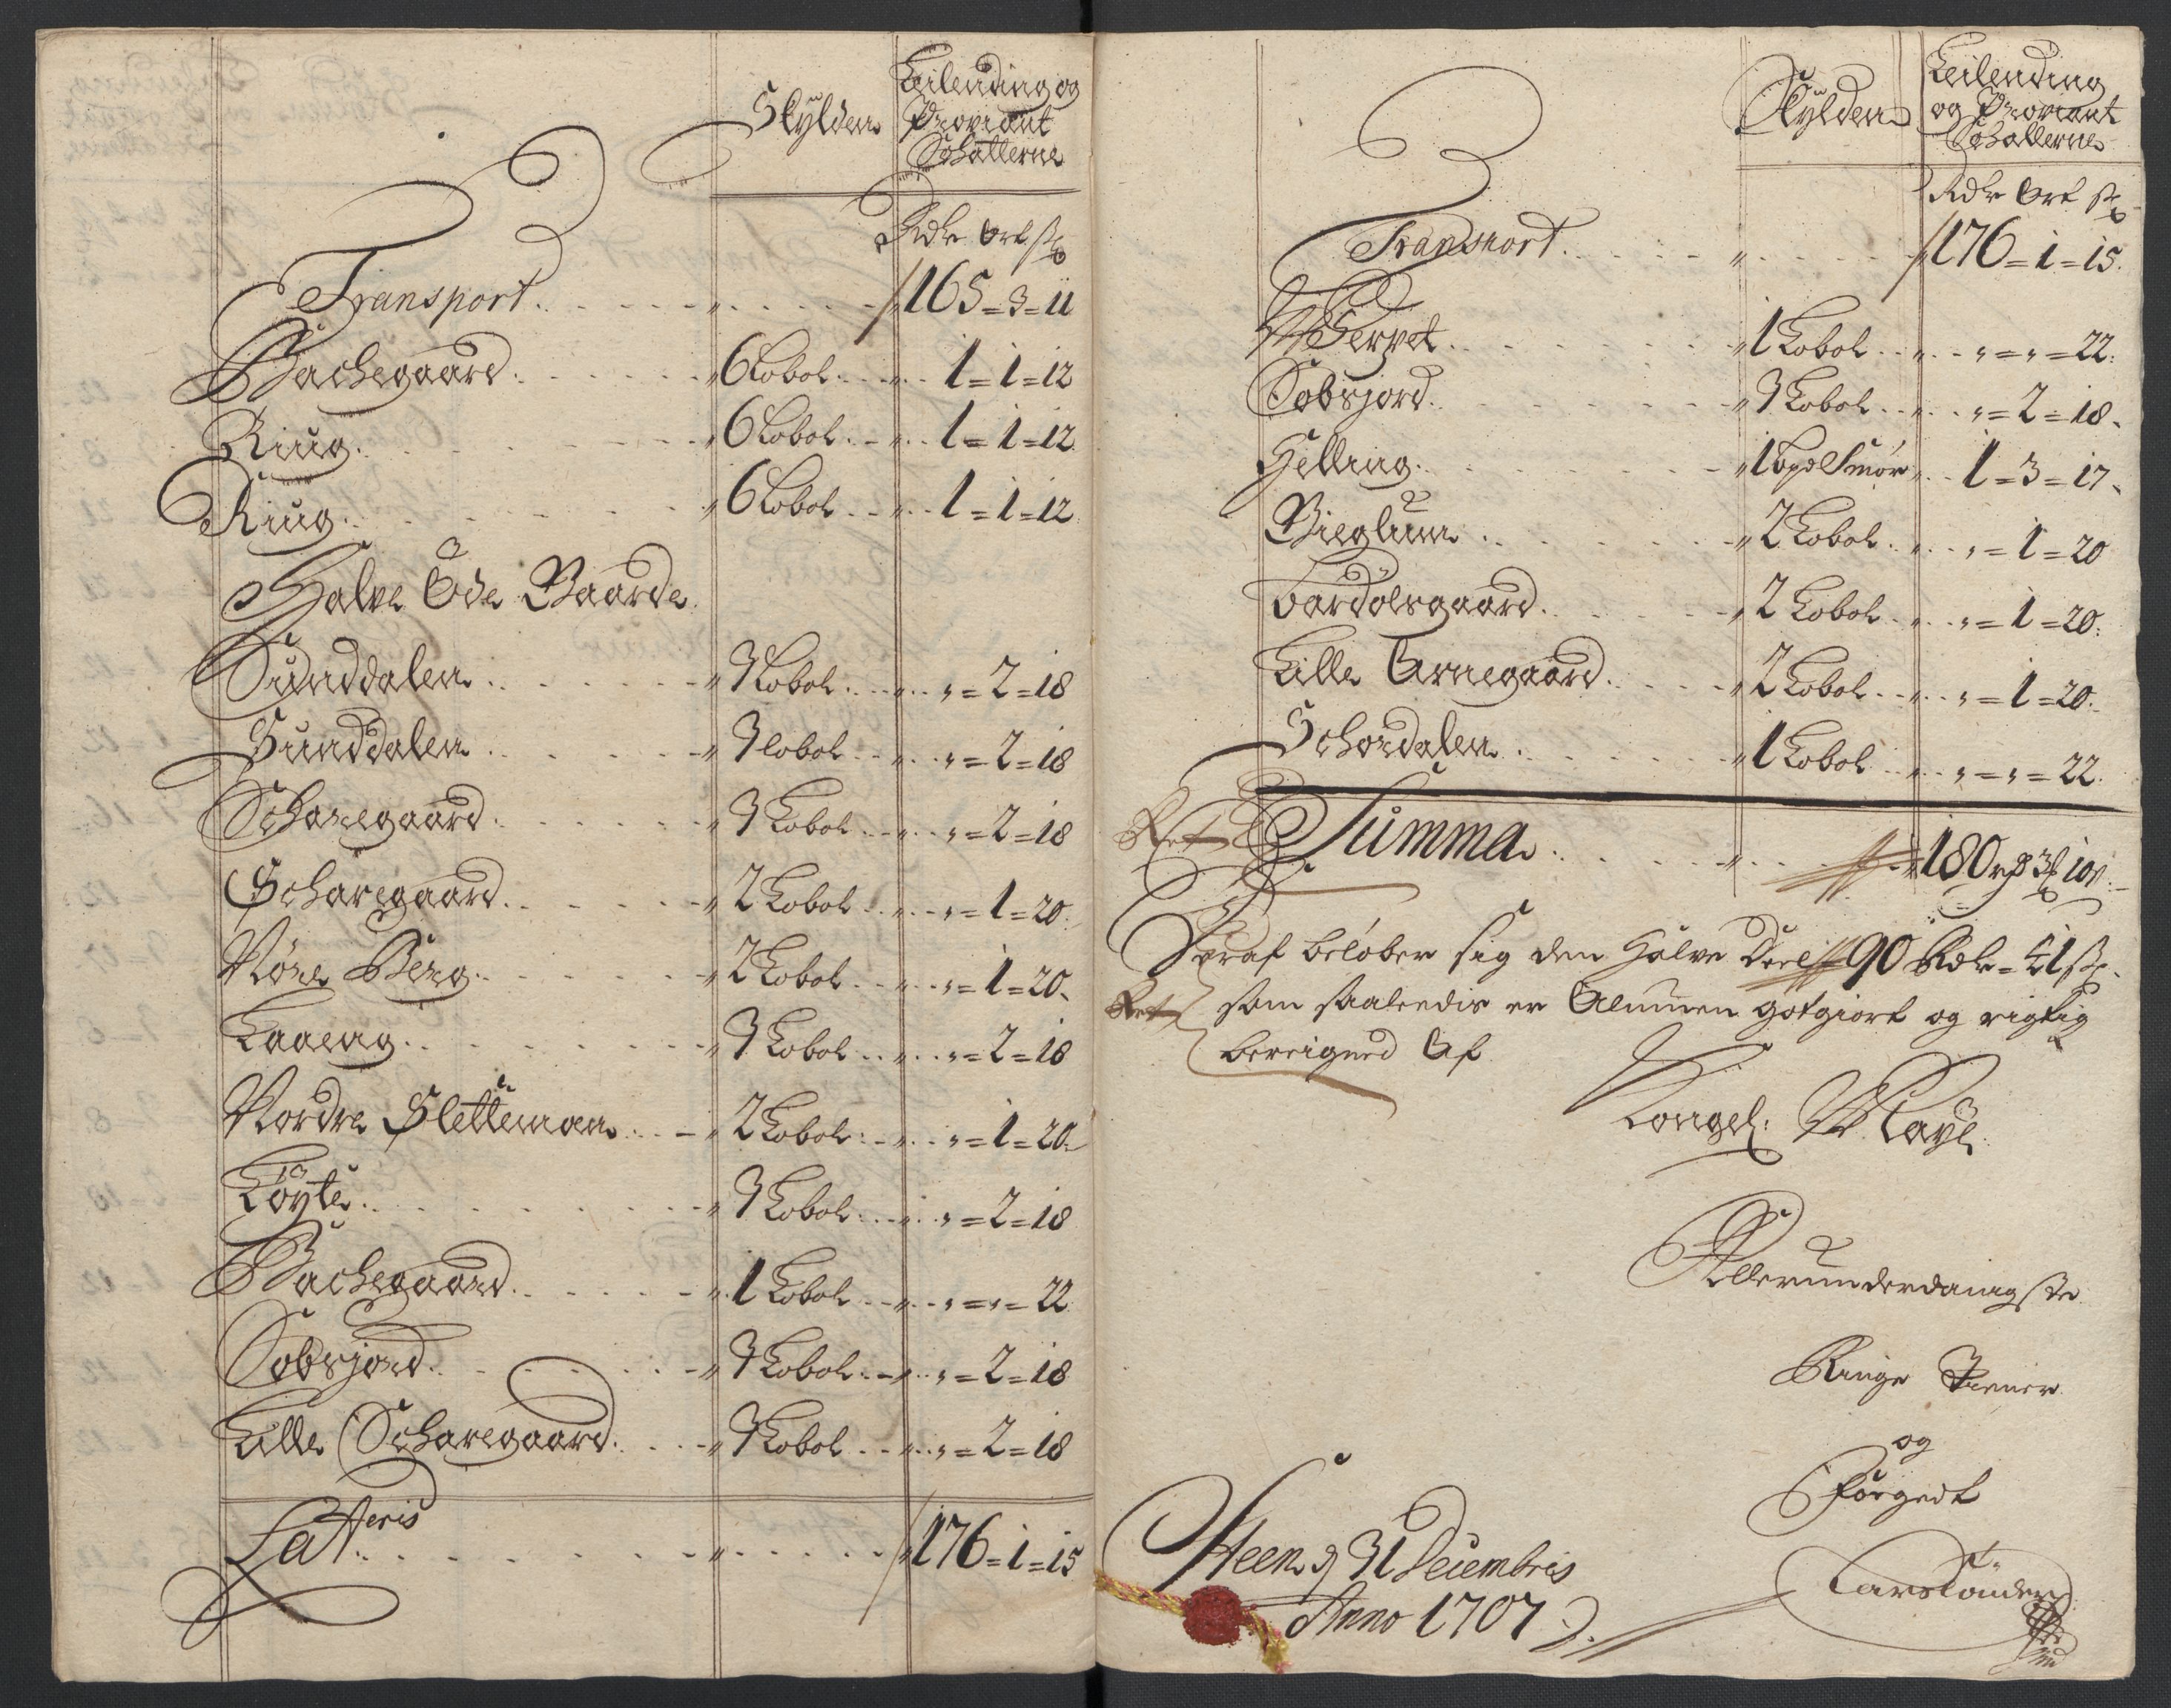 Skylden
Leilending og
Proviant
Schatterne
Rdr Ort s
Transport . . . . . " . . . . 165 = 3 = 11
Bachegaard . . . . . " 6 Lobol . . " . . 1 = 1 = 12
Ring . . . . . " 6 Lobol . . " . . 1 = 1 = 12
Ring . . . . . " 6 Lobol . . " . . 1 = 1 = 12
Halve Øde Gaarde
Sunddalen . . . . . " 3 Lobol . . " . . " = 2 = 18
Sunddalen . . . . . " 3 Lobol . . " . . " = 2 = 18
Scharegaard . . . . . " 3 Lobol . . " . . " = 2 = 18
Scharegaard . . . . . " 2 Lobol . . " . . " = 1 = 20
Nøre Berg . . . . . " 2 Lobol . . " . . " = 1 = 20
Laaeng . . . . . " 3 Lobol . . " . . " = 2 = 18
Nordre Slettemoen . . " 2 Lobol . . " . . " = 1 = 20
Løyte . . . . . " 3 Lobol . . " . . " = 2 = 18
Bachegaard . . . . . " 1 Lobol . . " . . " = " = 22
Sobsjord . . . . . " 3 Lobol . . " . . " = 2 = 18
Lille Scharegaard . . . " 3 Lobol . . " . . " = 2 = 18
Latteris . . . . . " . . . . 176 = 1 = 15
Skylden
Leilending
og Proviant
Schatterne
Rdr Ort s
Transport . . . . . " . . . . 176 = 1 = 15
. . . . . " 1 Lobol . . " . . " = " = 22
Sobsjord . . . . . " 3 Lobol . . " . . " = 2 = 18
Helling . . . . . " 1 bpd Smør " . . 1 = 3 = 17
. . . . . " 2 Lobol . . " . . " = 1 = 20
Bardolsgaard . . . . " 2 Lobol . . " . . " = 1 = 20
Lille Arnegaard . . . " 2 Lobol . . " . . " = 1 = 20
Schordalen . . . . . " 1 Lobol . . " . . " = " = 22
Summa . . . . . " . . . 180 rd 3 10
Heraf beløber sig den Halve Deel 90 Rdr = 41 s
som saaledis er Almuen gotgiort og rigtig
bereigned Af
Kongel: May:
Allerunderdanigste
Ringe Tiener
og
Foged
Heen d 31 Decembris
Anno 1707